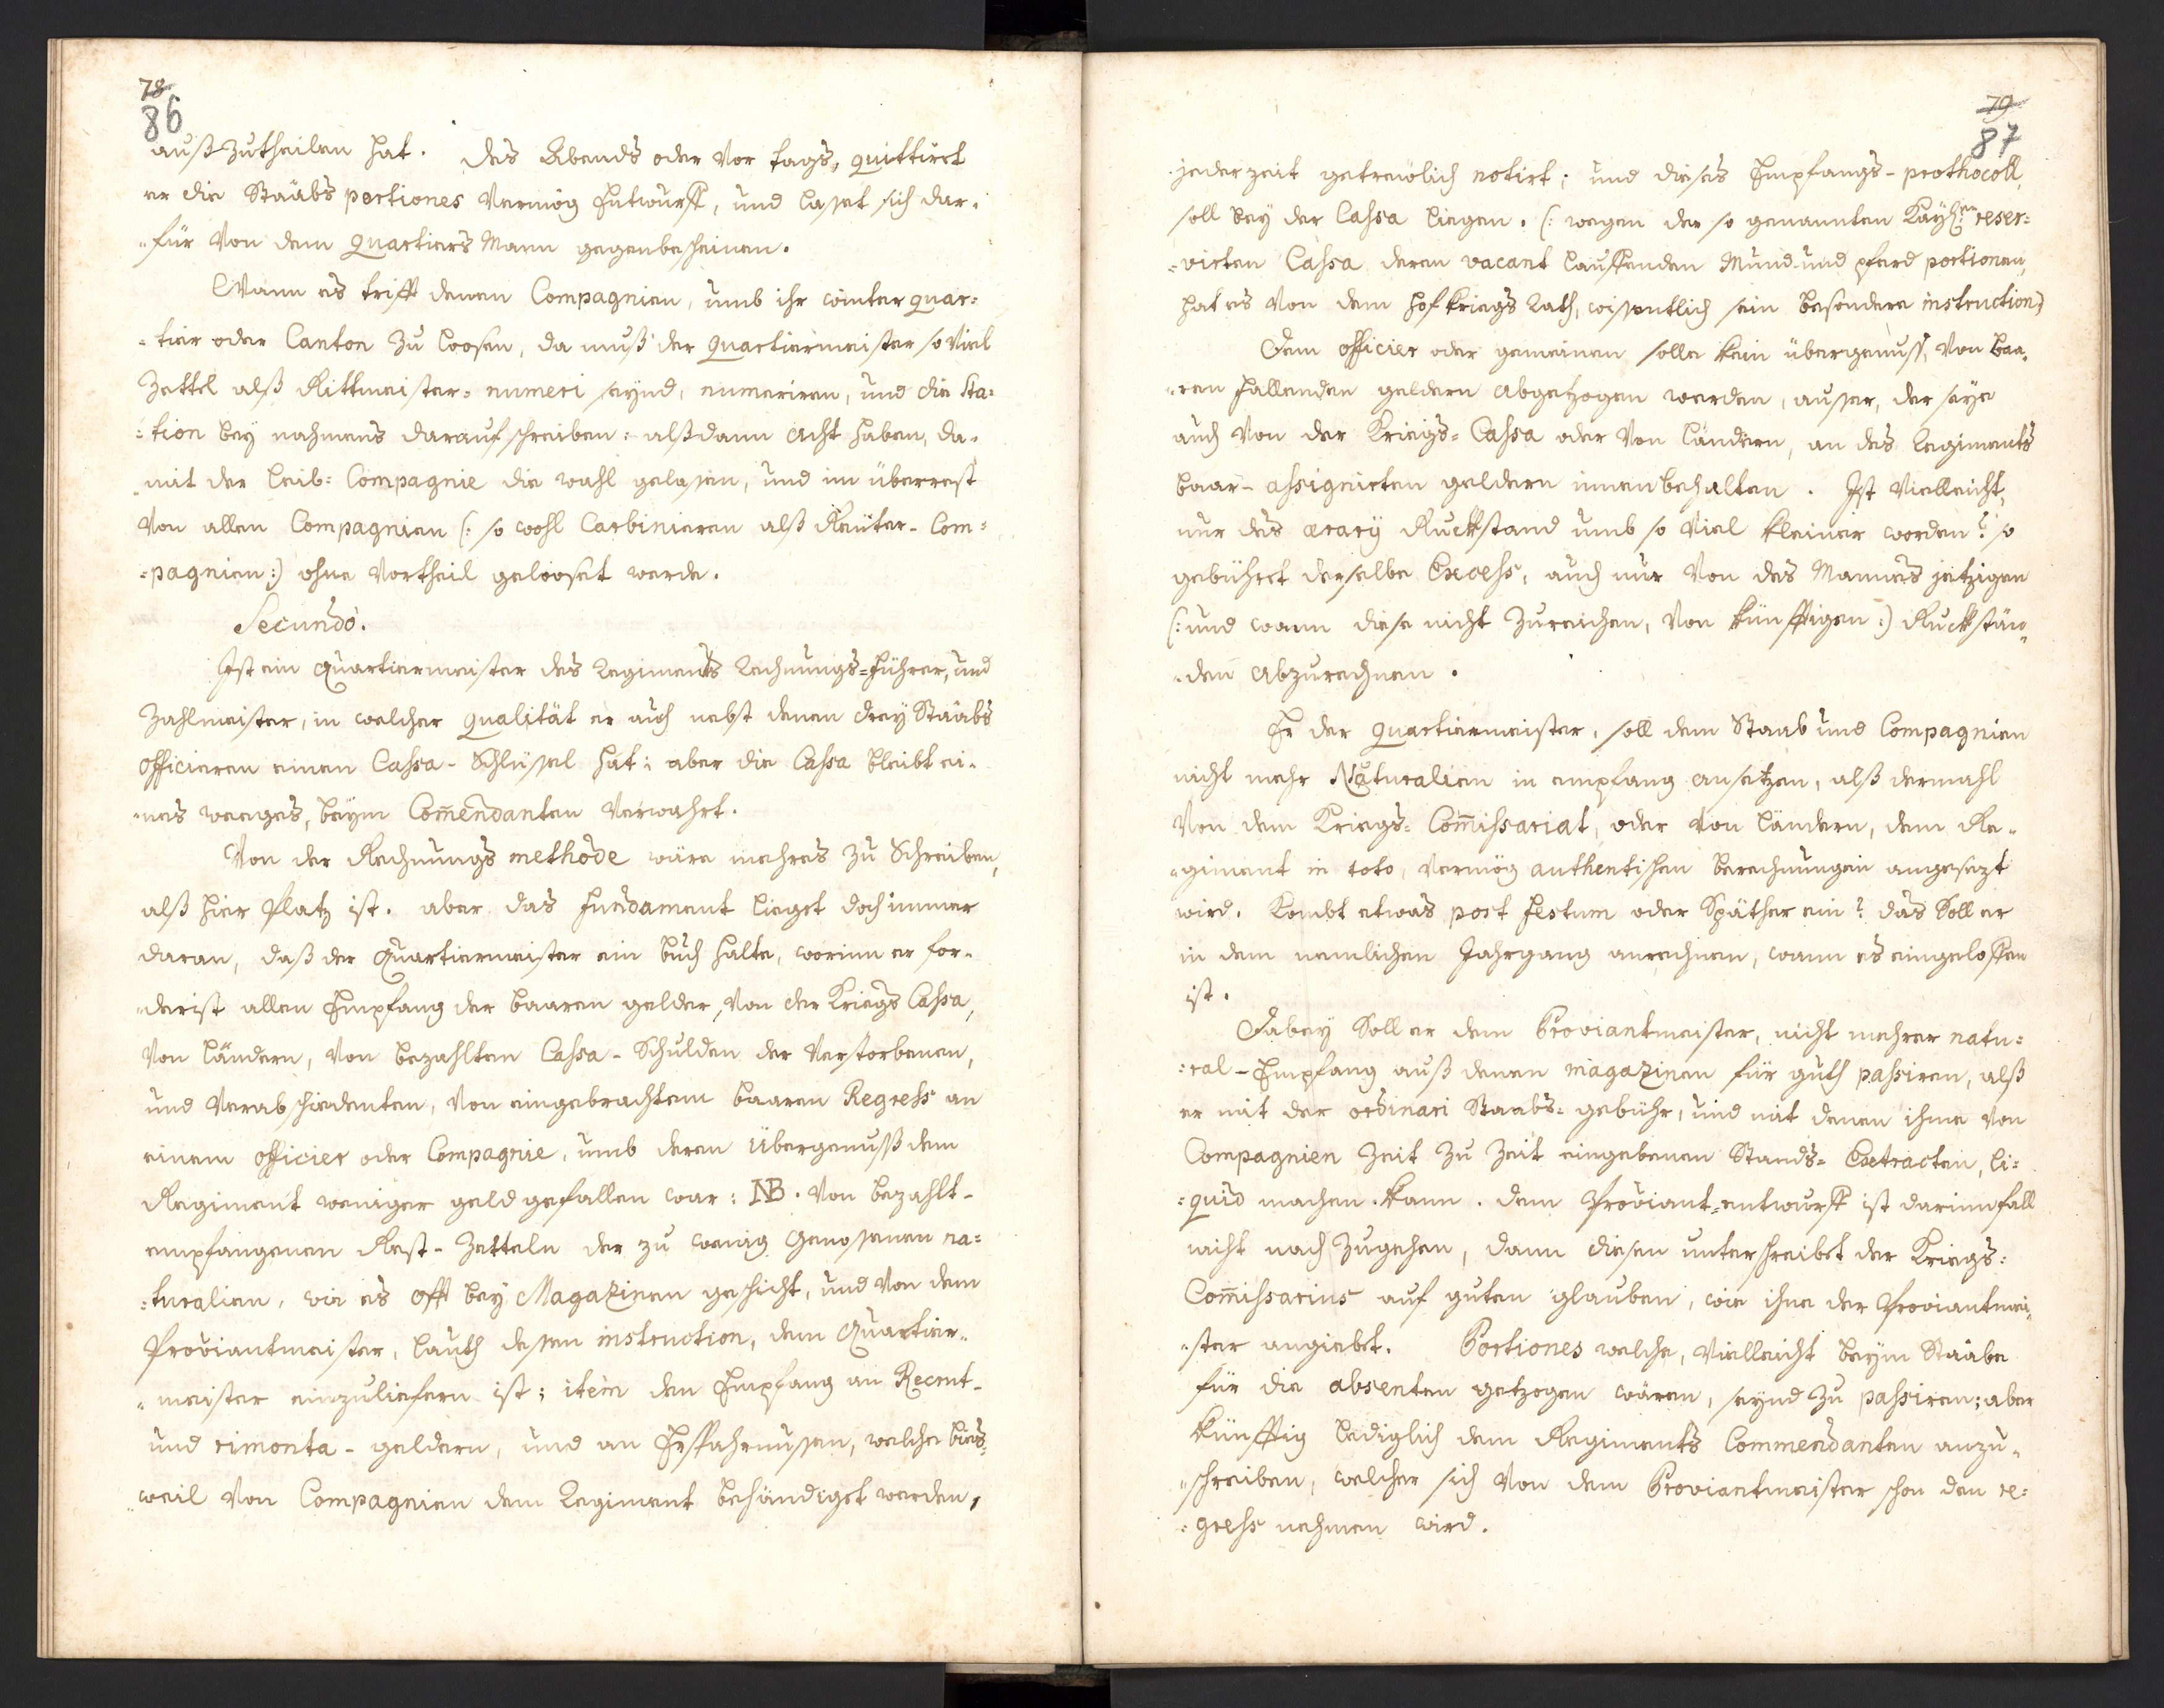 78
86
auß zutheilen hat. des Abends oder vor tags, quittirt
er die Staabs portiones vermög Entwurff, und lasset sich dar-
für von dem quartiers Mann gegenbescheinen.
Wann es trifft denen Compagnien, umb ihr winter quar=
=tier oder Canton zu loosen, da muß der quartiermeister so viel
Zettel alß Rittmeister= numeri seynd, numeriren, und die sta=
=tion bey nahmens darauf schreiben: alßdann acht haben, da-
mit der leib= Compagnie die wahl gelassen, und im überrest
von allen Compagnien (: so wohl Carbinieren alß Reüter- Com=
=pagnien:) ohne vortheil geloost werde.
Secundò.
Ist ein quartiermeister des Regiments Rechnungs=führer, und
Zahlmeister, in welcher qualität er auch nebst denen drey Staabs
officieren einen Cassa- Schlüssel hat: aber die Cassa bleibt ei-
nes weeges, beym Com̄endanten verwahrt.
Von der Rechnungs methode wäre mehres zu Schreiben,
alß hier Platz ist. aber das fundament lieget doch immer
daran, daß der Quartiermeister ein buch halte, worinn er for-
derist allen Empfang der baaren gelder, von der Kriegs Cassa,
von ländern, von bezahlten Cassa- Schulden der verstorbenen,
und verabschiedenten, von eingebrachtem baaren Regress an
einem officier oder Compagnie, umb deren übergenuß dem
Regiment weniger geld gefallen war: NB. von bezahlt-
empfangenen Rest- Zetteln der zu wenig genossenen na=
=turalien, wie es offt bey Magazinen geschicht, und von dem
Proviantmeister, lauth dessen instruction, dem Quartier-
meister einzuliefern ist; item den Empfang an Recrut-
und rimonta- geldern, und an Ersparnussen, welche bies=
weil von Compagnien dem Regiment behändiget werden,
79
87
jederzeit getreulich notirt; und dieses Empfangs- prothocoll,
soll bey der Cassa liegen. (: wegen der so genannten Kayß:en reser=
=virten Cassa deren vacant lauffenden Mund und pferd portionen,
hat es von dem Hof kriegs Rath, wissentlich sein besondere instruction:)
Dem officier oder gemeinen solle kein übergenuss, von baa-
ren fallenden geldern abgezogen werden, ausser, der seye
auch von der Kriegs= Cassa oder von ländern, an des Regiments
baar- assignirten geldern innen behalten. Ist vielleicht,
nur des ærary Ruckstand umb so viel kleiner worden? so
gebührt derselbe Excess, auch nur von des Mannes jetzigen
(: und wann diese nicht zureichen, von künfftigen:) Ruckstän-
den abzurechnen.
Er der quartiermeister, soll dem Staab und Compagnien
nicht mehr Naturalien in empfang ansetzen, alß dermahl
von dem Kriegs= Com̄issariat, oder von ländern, dem Re-
giment in toto, vermög authentischen berechnungen angesezt
wird. Kombt etwas post festum oder Späther ein? das Soll er
in dem nemlichen Jahrgang anrechnen, wann es eingeloffen
ist.
Dabey Soll er dem Proviantmeister, nicht mehrer natu=
=ral- Empfang auß denen magazinen für guth passiren, alß
er mit der ordinari Staabs= gebühr, und mit denen ihme von
Compagnien Zeit zu Zeit eingebenen Stands= Extracten, li=
=quid machen kann. dem Proviant-entwurff ist darinnfall
nicht nach zugehen, dann diesen unterschreibet der Kriegs=
Com̄issarius auf guten glauben, wie ihne der Proviantmei-
ster angiebt. Portiones welche, vielleicht beym Staabe
für die absenten gezogen wären, seynd zu passiren; aber
künfftig lediglich dem Regiments Commendanten anzu-
schreiben, welcher sich von dem Proviantmeister schon den re=
=gress nehmen wird.